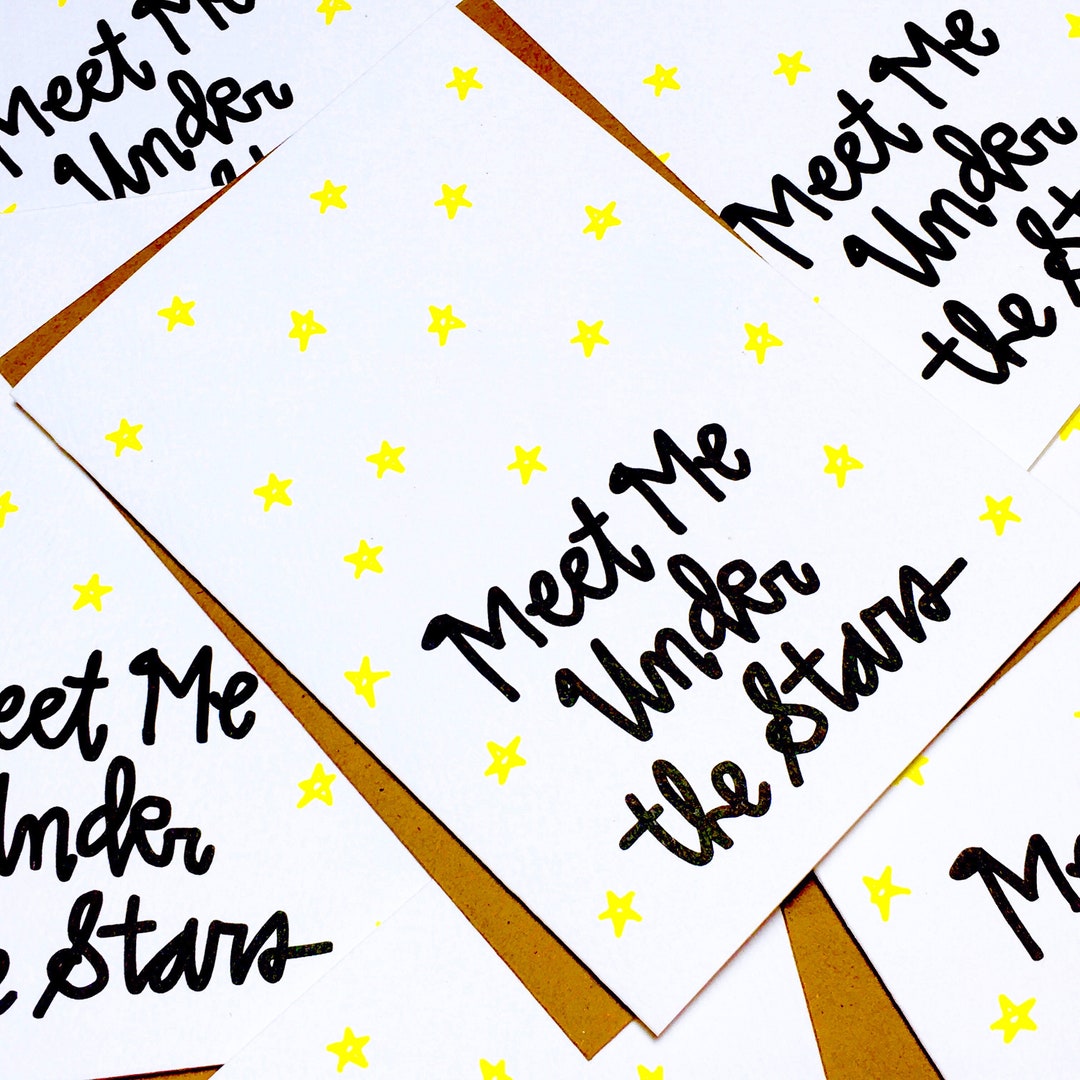 Meet Me
Under
Meet Me
Under
the
Meet Me
Under
the Stars
Me
Under
Stars